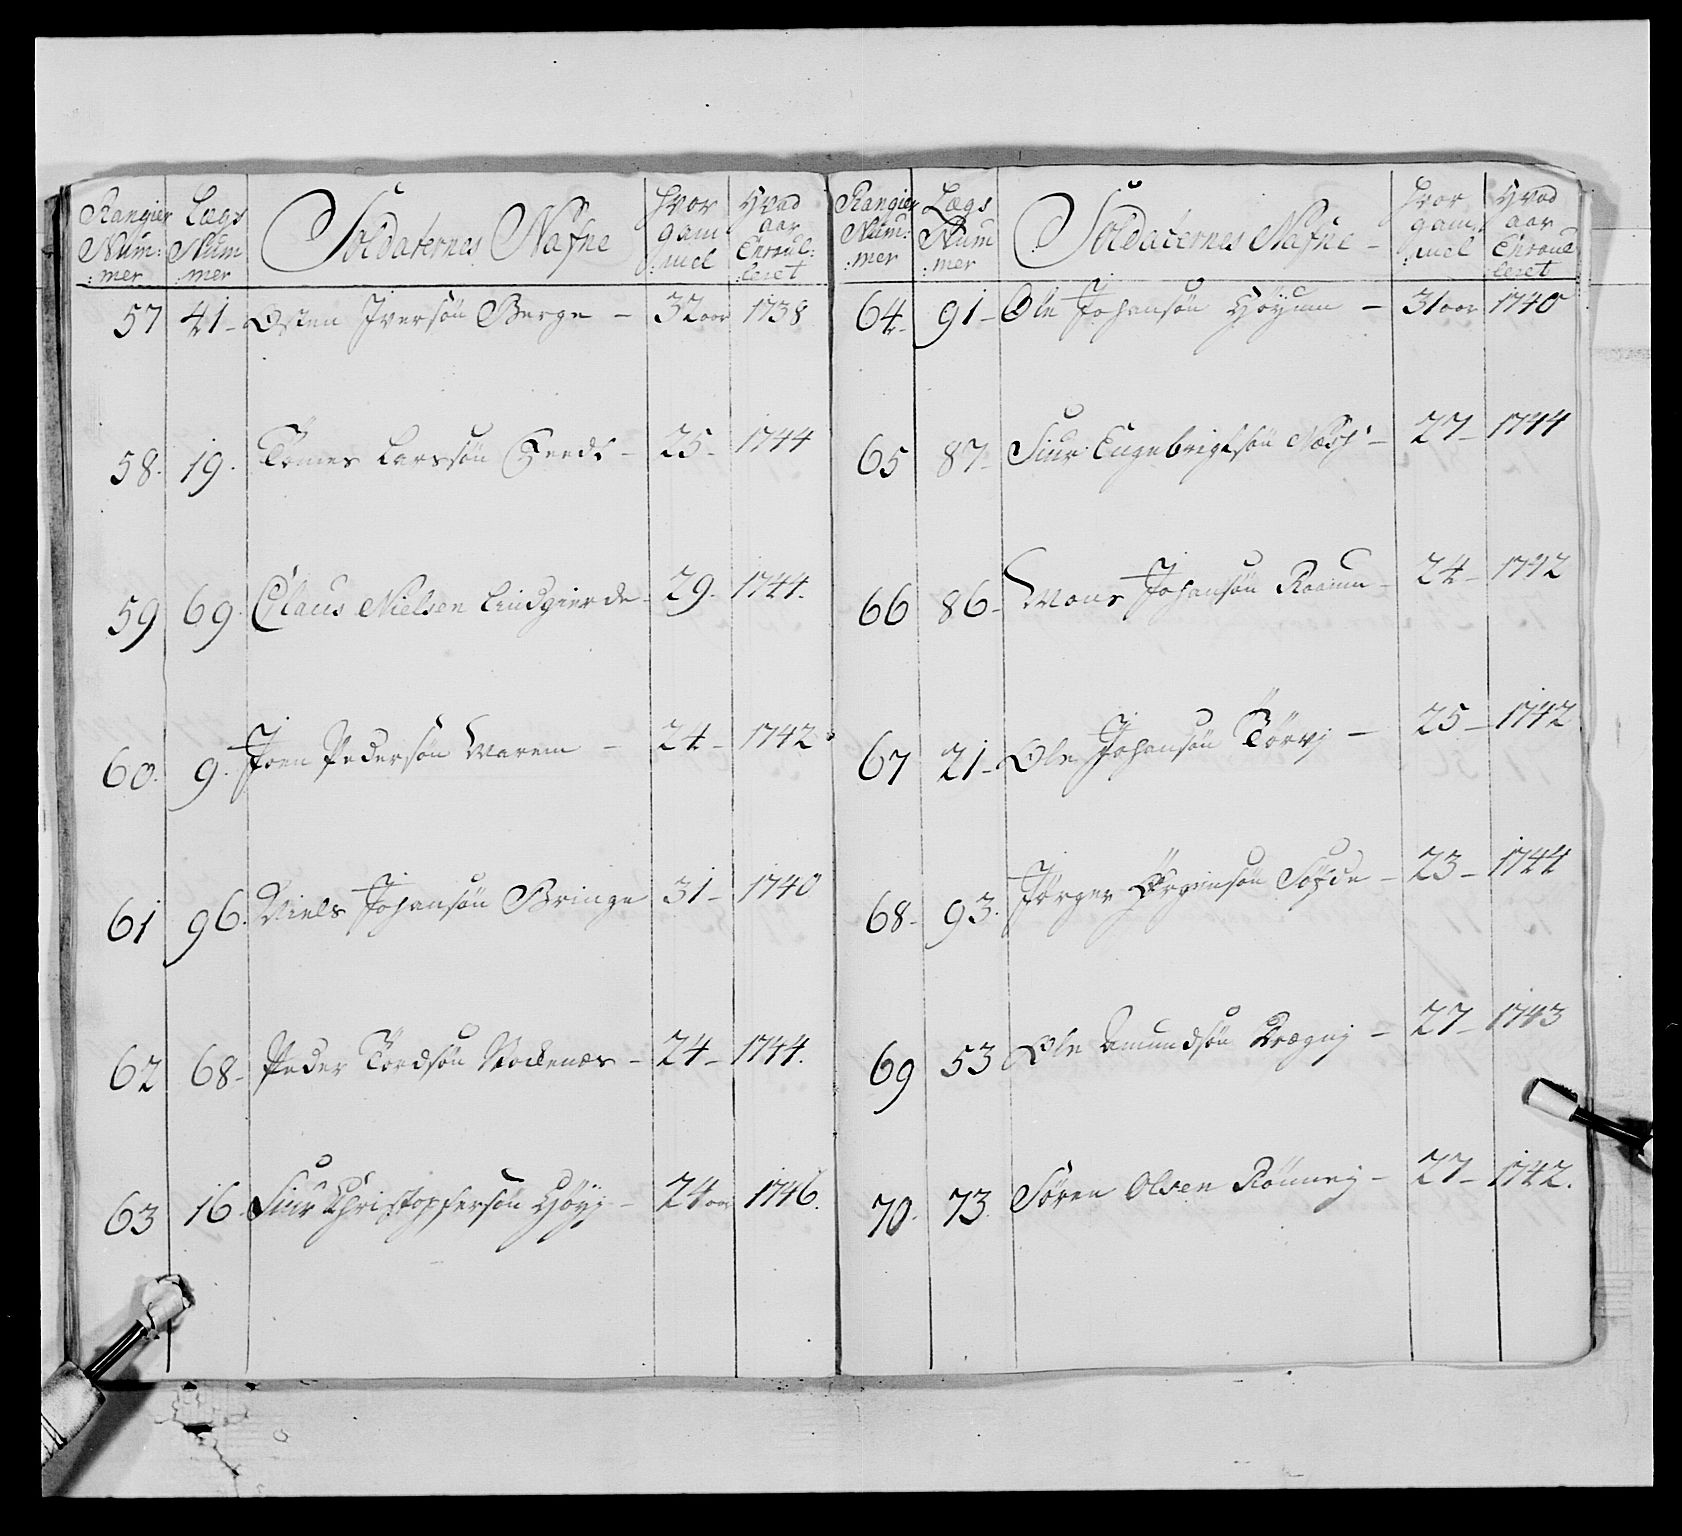 Rangier Num: :mer
Lægs Num :mer
Soldaternes Nafne
Hvor gam :mel
Hvad aar Enroul: :leret
57 41 - Østen Iversøn Berge - 32 aar 1738
58. 19. Tomes Larssøn - 25 - 1744
59 69. Claus Nielsen Lindgierde - 29. 1744.
60. 9. Joen Pedersøn Warem - 24 - 1742
61 96. Niels Johansøn Bringe 31 - 1740
62 68 - Peder Tordsøn Nockenæs - 24 - 1744.
63 16. Siur Christophersøn Høyj - 24 aar 1746.
Rangier Num: :mer
Lægs Num :mer
Soldaternes Nafne -
Hvor gam :mel
Hvad aar Enroul :leret
64 - 91 - Ole Johansøn Høyum - 31 aar 1740
65 87 - Siur Engebrigtsøn - 27 - 1744
66 86 - Mons Johansøn Raaum - 24 - 1742
67 21 - Ole Johansøn Tørvj - 25 - 1742
68 - 93. Jørgen Søfde - 23 - 1744
69 53 Ole Amundsøn - 27 - 1743
70. 73. Søren Olsen Rønnej - 27 - 1742.